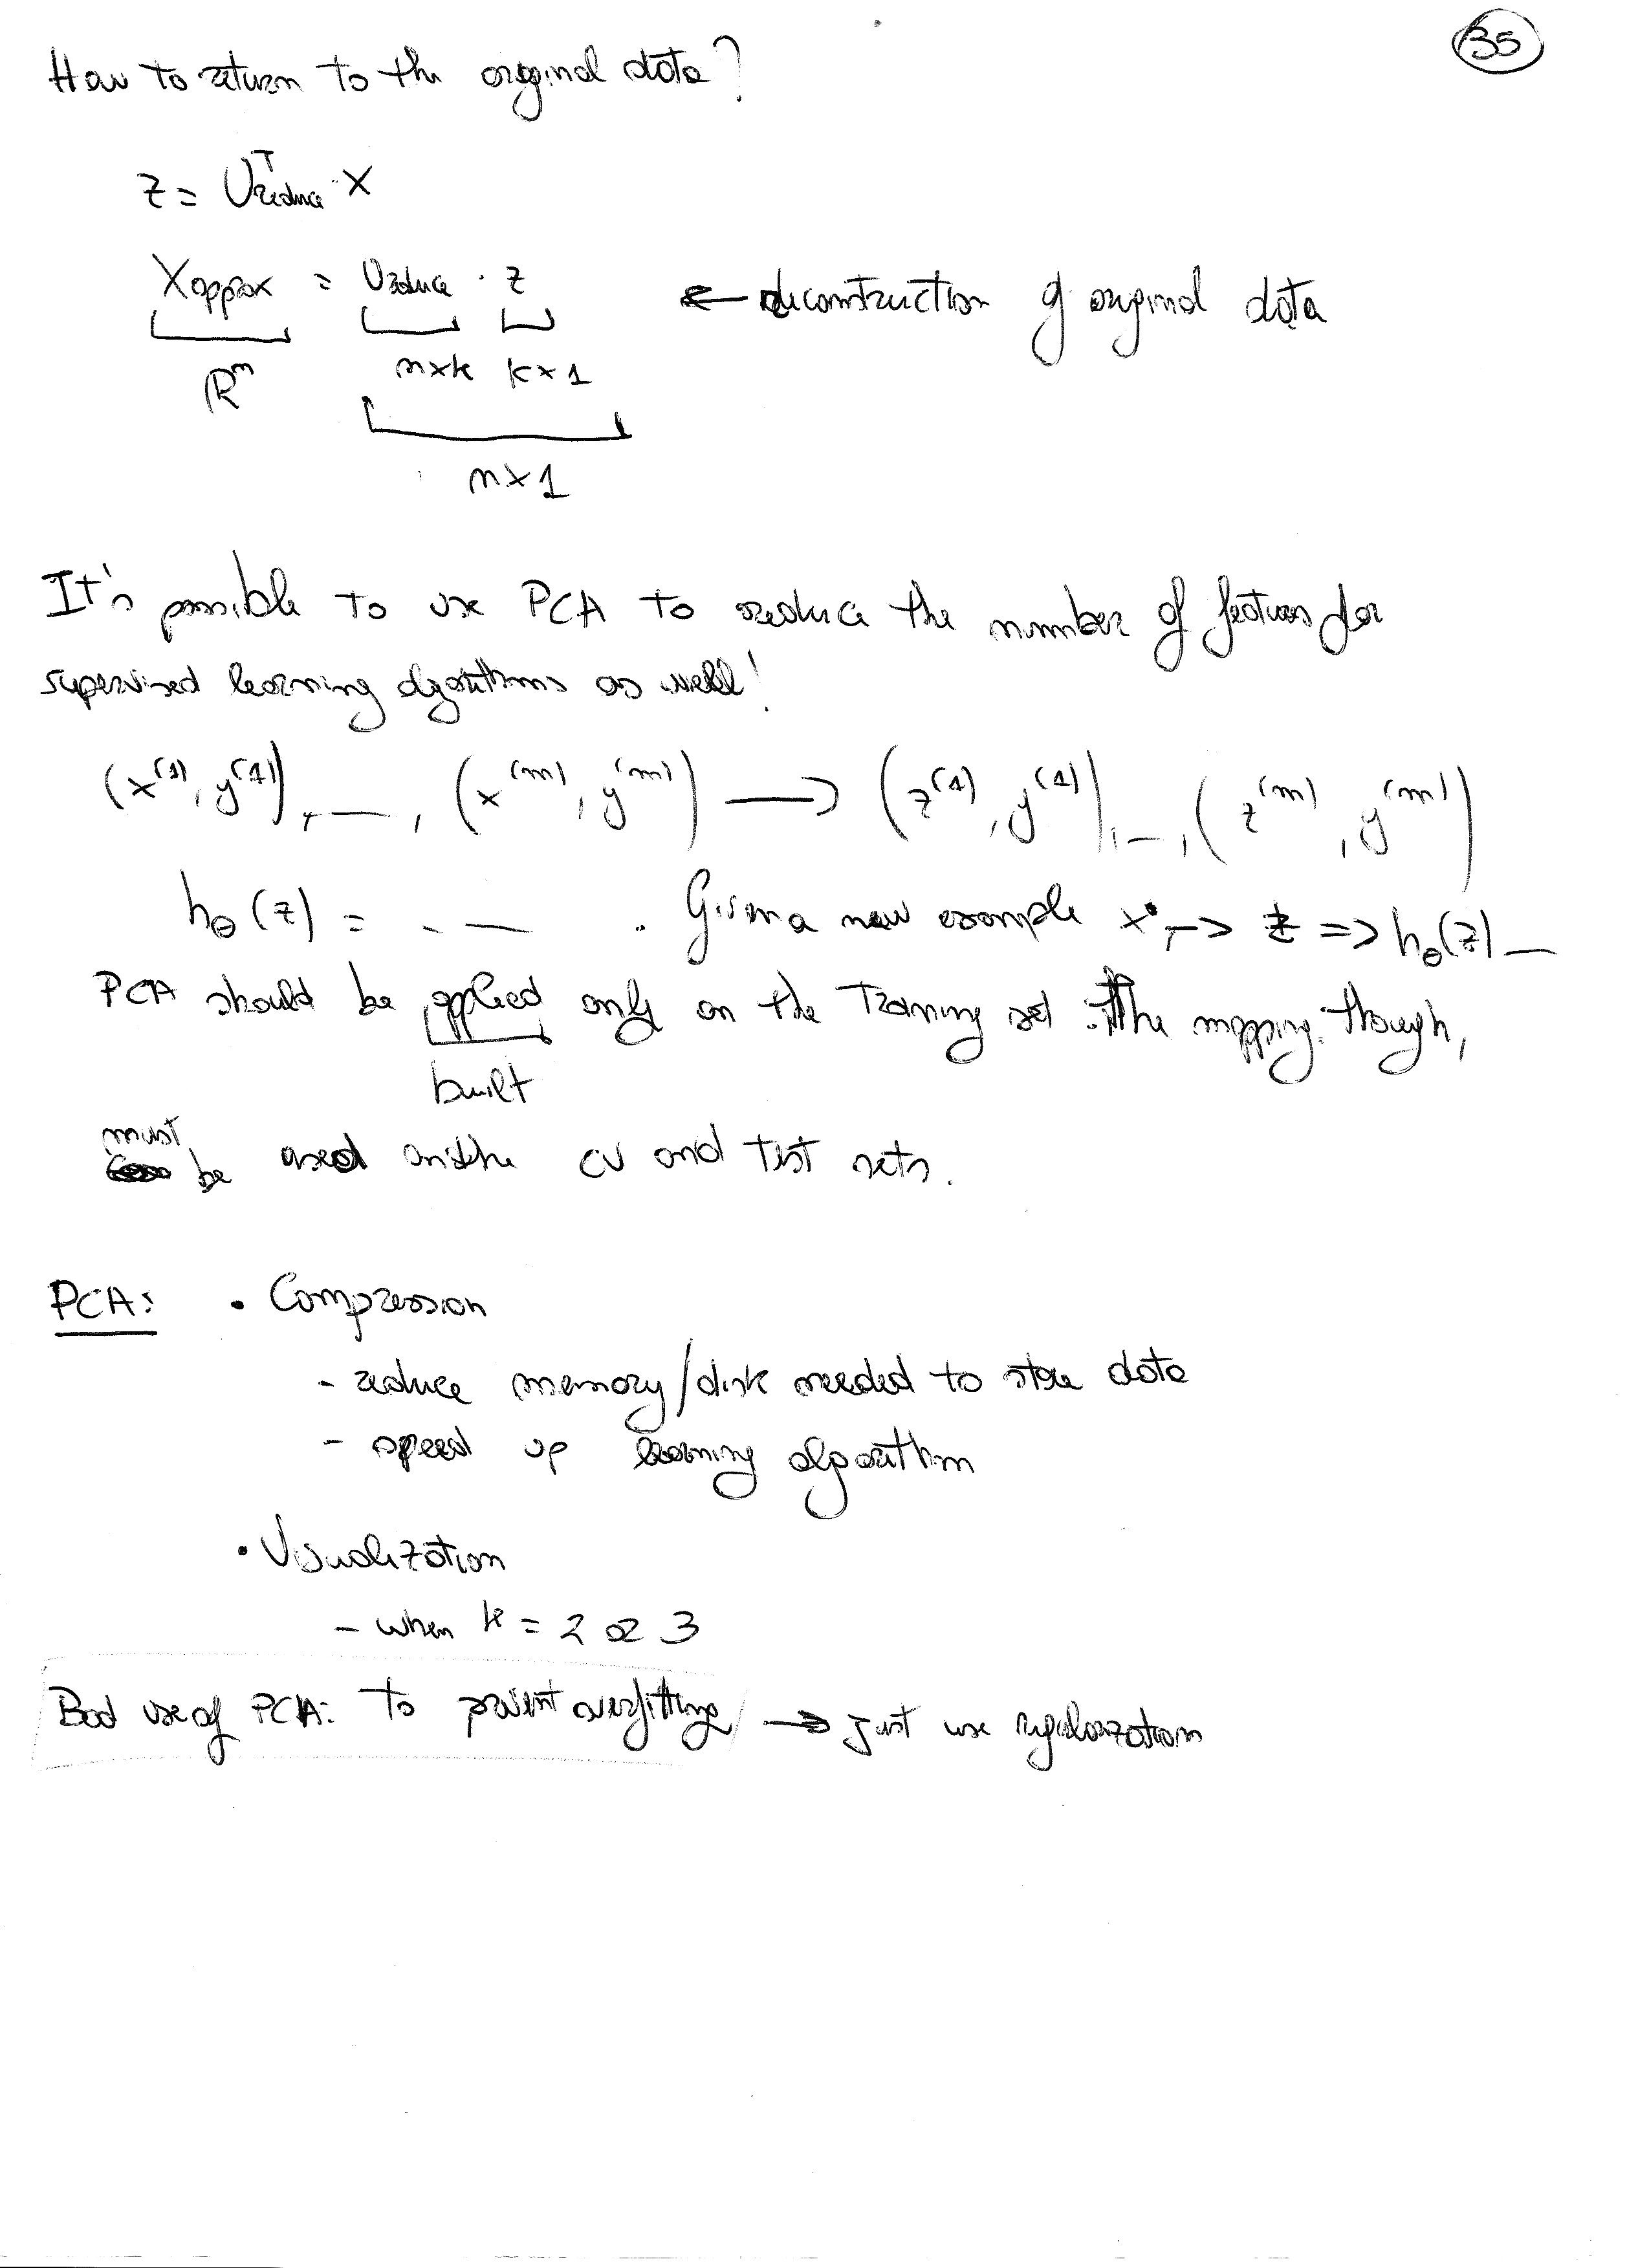 35
How to return to the original data?
z = Uᵀreduce · X
Xapprox = Ureduce · z ← deconstruction of original data
Rⁿ n×k k×1
n×1
It's possible to use PCA to reduce the number of features for
supervised learning algorithms as well!
(x⁽¹⁾, y⁽¹⁾), —, (x⁽ᵐ⁾, y⁽ᵐ⁾) → (z⁽¹⁾, y⁽¹⁾), —, (z⁽ᵐ⁾, y⁽ᵐ⁾)
hθ(z) = . — . Given a new example x, → z => hθ(z) —
PCA should be applied only on the Training set. The mapping, though,
built
must
be used on the CV and Test sets.
PCA: • Compression
- reduce memory/disk needed to store data
- speed up learning algorithm
• Visualization
- when k = 2 or 3
Bad use of PCA: To prevent overfitting → Just use regularization